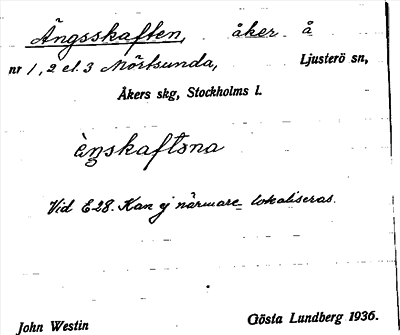 Ängsskaften, åker å
nr 1, 2 el. 3 Mörtsunda, Ljusterö sn,
Åkers skg, Stockholms l.
ängskaftǝna
Vid E28. Kan ej närmare lokaliseras.
John Westin Gösta Lundberg 1936.